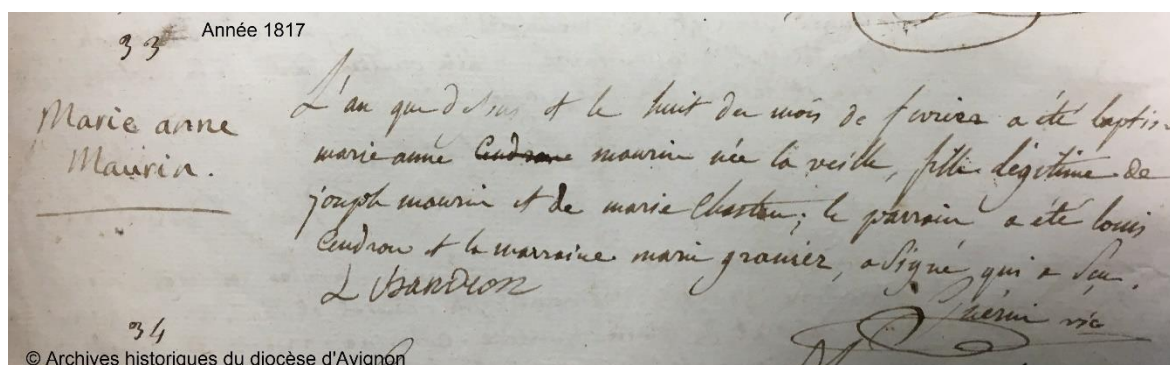 33
Année 1817
Marie anne
Maurin.
L'an que dessus et le huit du mois de fevrier a été baptis
marie anne maurin née la veille, fille légitime de
joseph maurin et de marie Chastan; le parrain a été louis
Cendron et la marraine marie granier, a signé qui a seu.
L Chandron
Guérin vic
34
© Archives historiques du diocèse d'Avignon